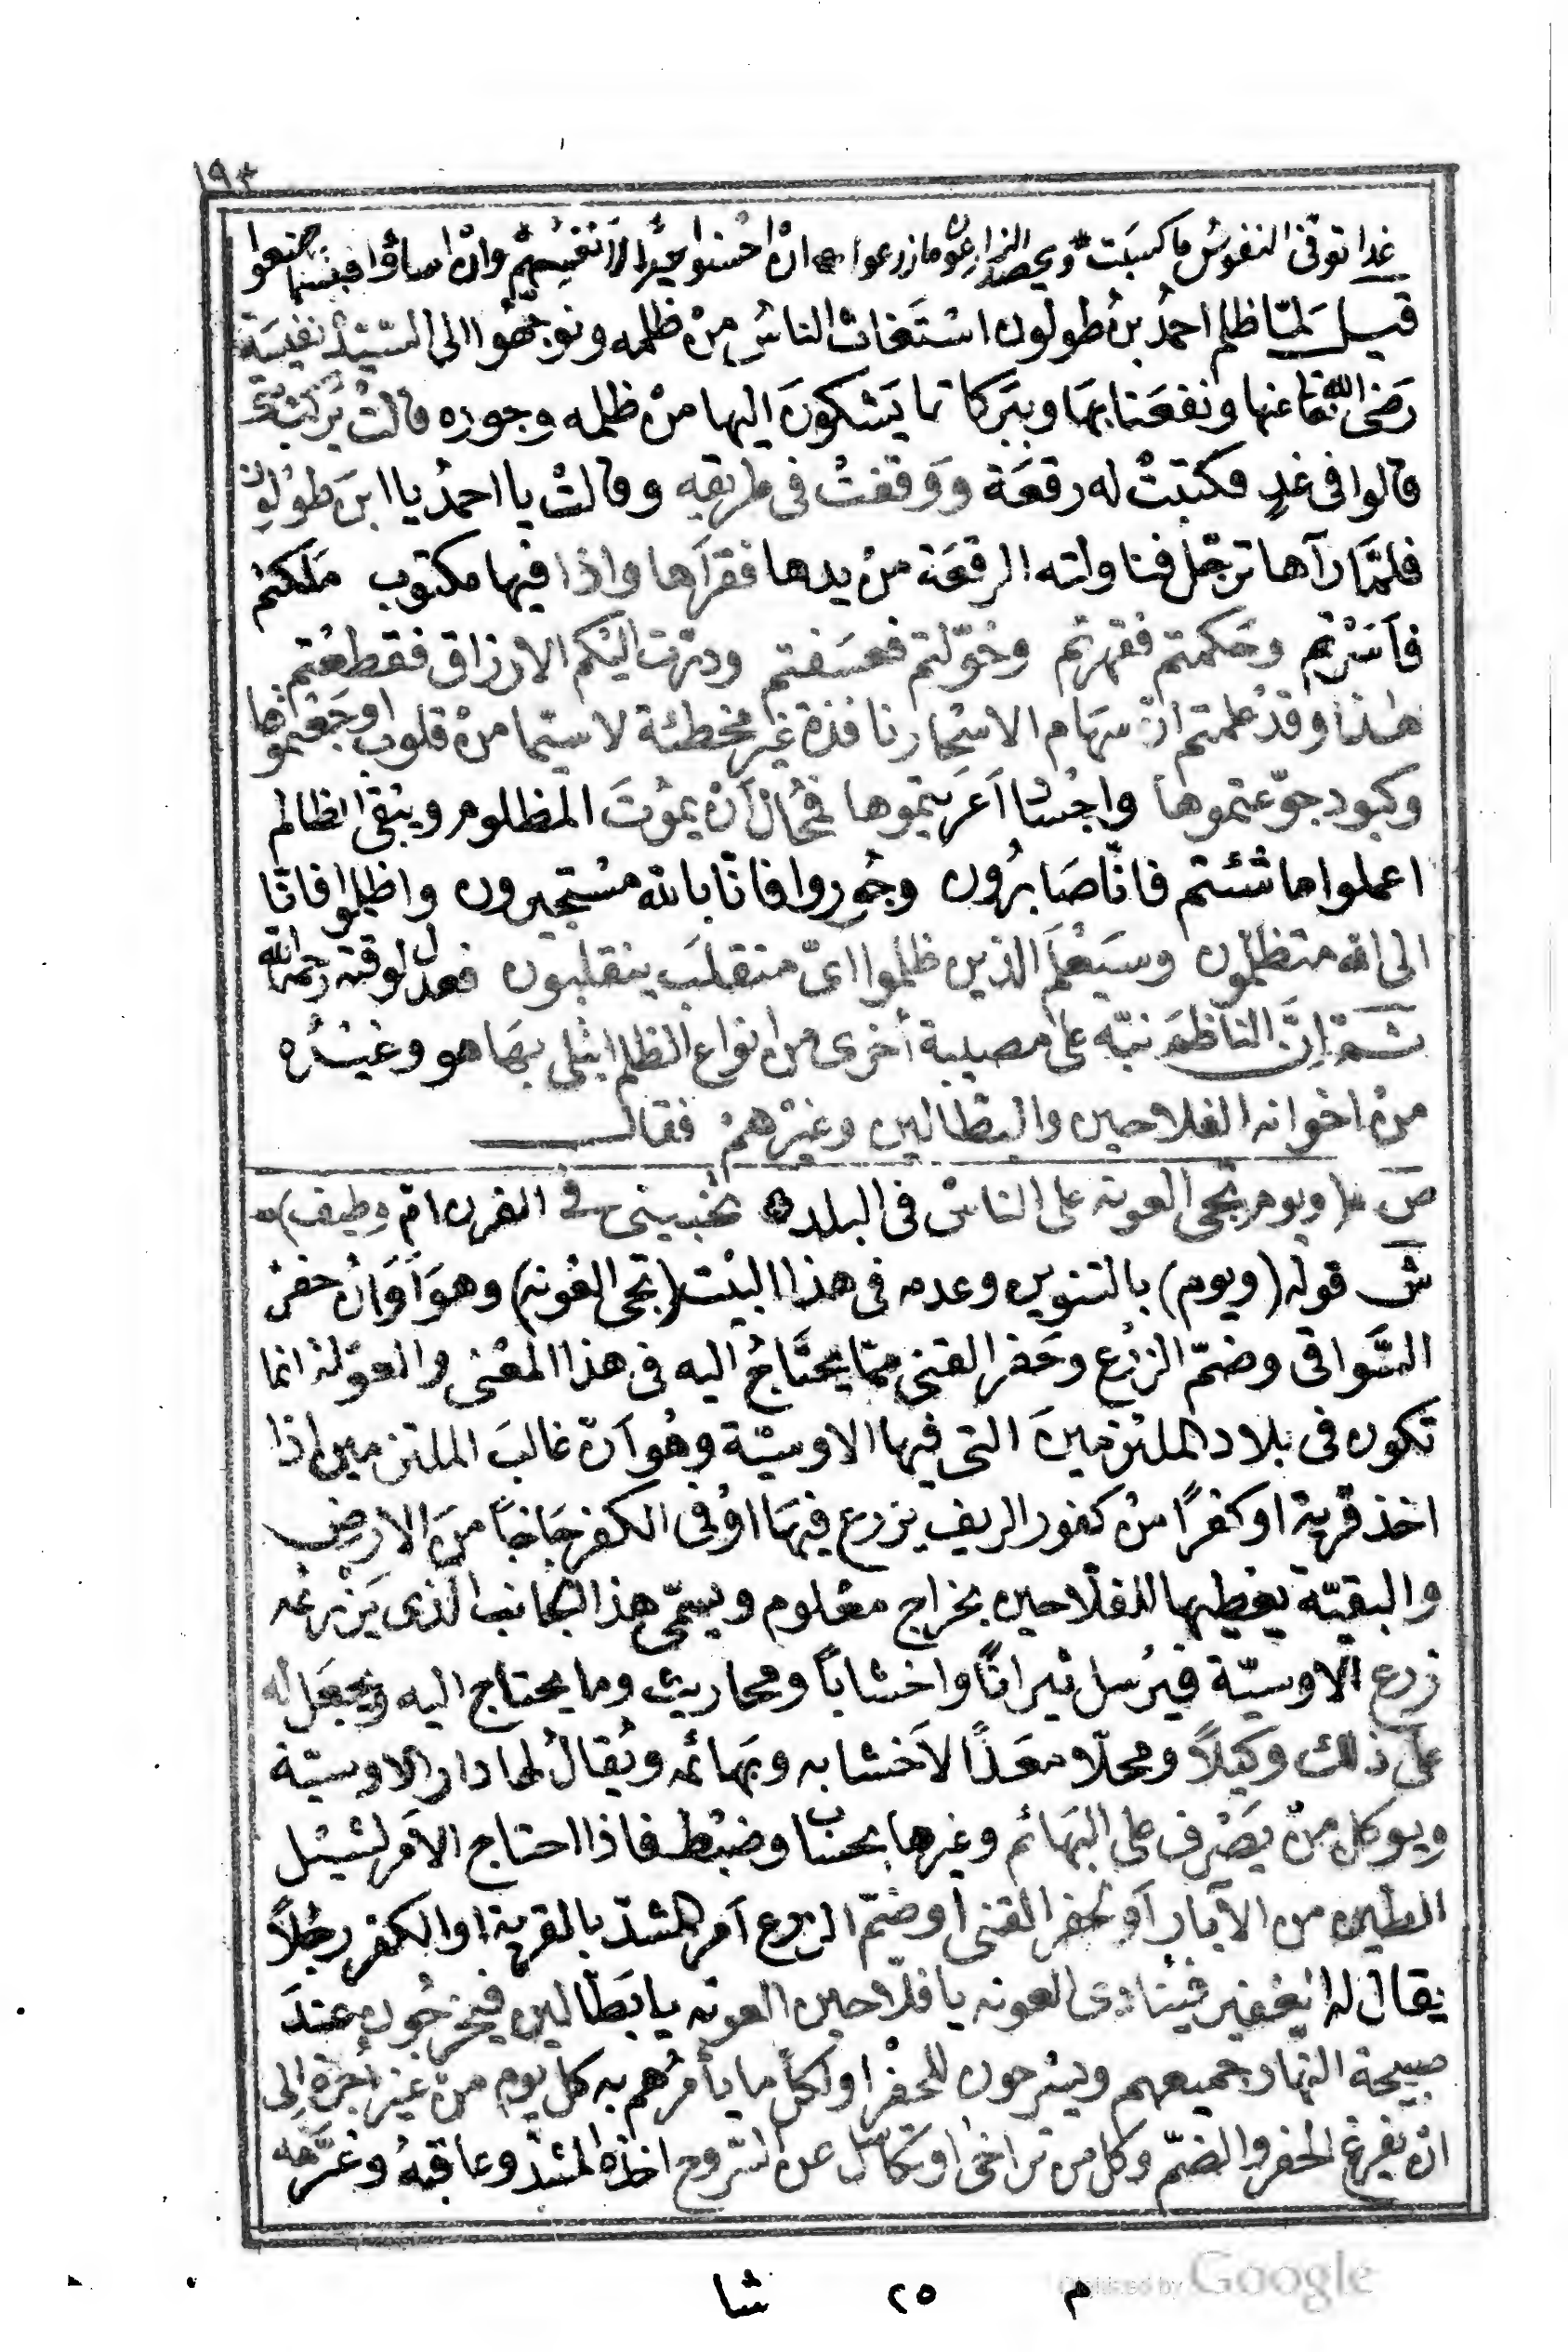 ١٩٣
غدا توفى النفوس ما كسبت * ويحصد الزارعون ما زرعوا * ان احسنوا احسنوا لانفسهم وان اساؤا فبئسما صنعوا
قيل لمّا ظلم احمدُ بنُ طولون استغاث الناسُ منْ ظلمه وتوجّهُوا الى السّيّدة نفيسَة
رَضى الله تعالى عنها ونفعَنا بهَا وببَركاتها يَشكونَ اليها منْ ظلمه وجوره قالتْ متى يركب
قالوا فى غدٍ فكتبتْ له رقعَة ووَقفتْ فى طريقه وقالتْ يا احمدُ يا ابنَ طوُلون
فلمّا رآها ترجّل فناولته الرقعَة منْ يدها فقرأها واذا فيها مكتوب مَلكتم
فأسَرْتم وحَكمتم فقهرتم وخوّلتم فعسَفتم ودرّت اليْكم الارزاق فقطعْتم
هٰذا وقدْ علمتم انّ سهَام الاسْحار نافذة غيْر مخطئة لاسيّما منْ قلوب اوجَعْتموها
وكبود جوّعتموها واجْسَاد اَعرَيتموها فمُحال اَنْ يموُتَ المظلوم ويبْقى الظالم
اعملوا ما شئتم فانّا صَابرُون وجُوروا فانّا بالله مسْتجيرون واظلموا فانّا
الى الله متظلّمون وسيَعْلمَ الذين ظلموا اىّ منقلَب ينقلبون فعدل لوقته رحمه الله
ثمّ اِنَّ الناظمَ نبّه على مصيبة أخرى من انواع الظلم ابتلى بهَا هو وغيْرُه
منْ اخوانه الفلاحين والبطّالين وغيْرهمْ فقال
صَ (ويوم تجى العونه على الناسْ فى البلد * تخبينى فى الفرن امّ وطيف)
شَ قوله (ويوم) بالتنوين وعدمه فى هذا البيْت (تجى العْونه) وهوَ اَوَانُ حفرْ
السَّواقى وضمّ الزرْع وحَفر القنى ممّا يحتَاجُ اليه فى هذا المعْنى والعوْنه انما
تكون فى بلاد الملتزمينَ التى فيها الاوسيّة وهُو اَنّ غالبَ الملتزمين اذا
اخذ قرية او كفرًا منْ كفور الريف يزرع فيهَا اوْ فى الكفر جَانبًا منَ الارضِ
والبقيّة يعْطيها للفلّاحين بخراج معْلوم ويسمّى هذا الجانب الّذى يَزْرعْه
زرع الاوسيّة فيرْسل ثيرانًا واخشابًا ومحاريث وما يحتاج اليه ويجعَل له
على ذلك وكيلاً ومحلّا معَدًّا لاَخشابه وبهَائمه ويُقالُ لها دار الاوسيّة
ويوكل منْ يَصْرف على البهَائم وغيرها بحسَاب وضبْط فاذا احتاج الاَمر لشيْل
الطين من الآبار اَو لحفر القنى اَو ضَمّ الزرع اَمر المشدّ بالقرية او الكفر رجُلاً
يقال له الغفير فينَادى العونه يا فلّاحين العونه يا بَطّالين فيخرجُون عندَ
صبيحة النّهار جميعهم ويسْرحون للحفْر او لكلّ ما يأمرُهم به كلّ يوم منْ غيْر اجْرة اِلى
انْ يفرغ الحفر والضمّ وكل من تراخى او تكاسَل عن السّروح اخذه المشدّ وعاقبهُ وغرّمه
م ٢٥ شا
Digitized by Google